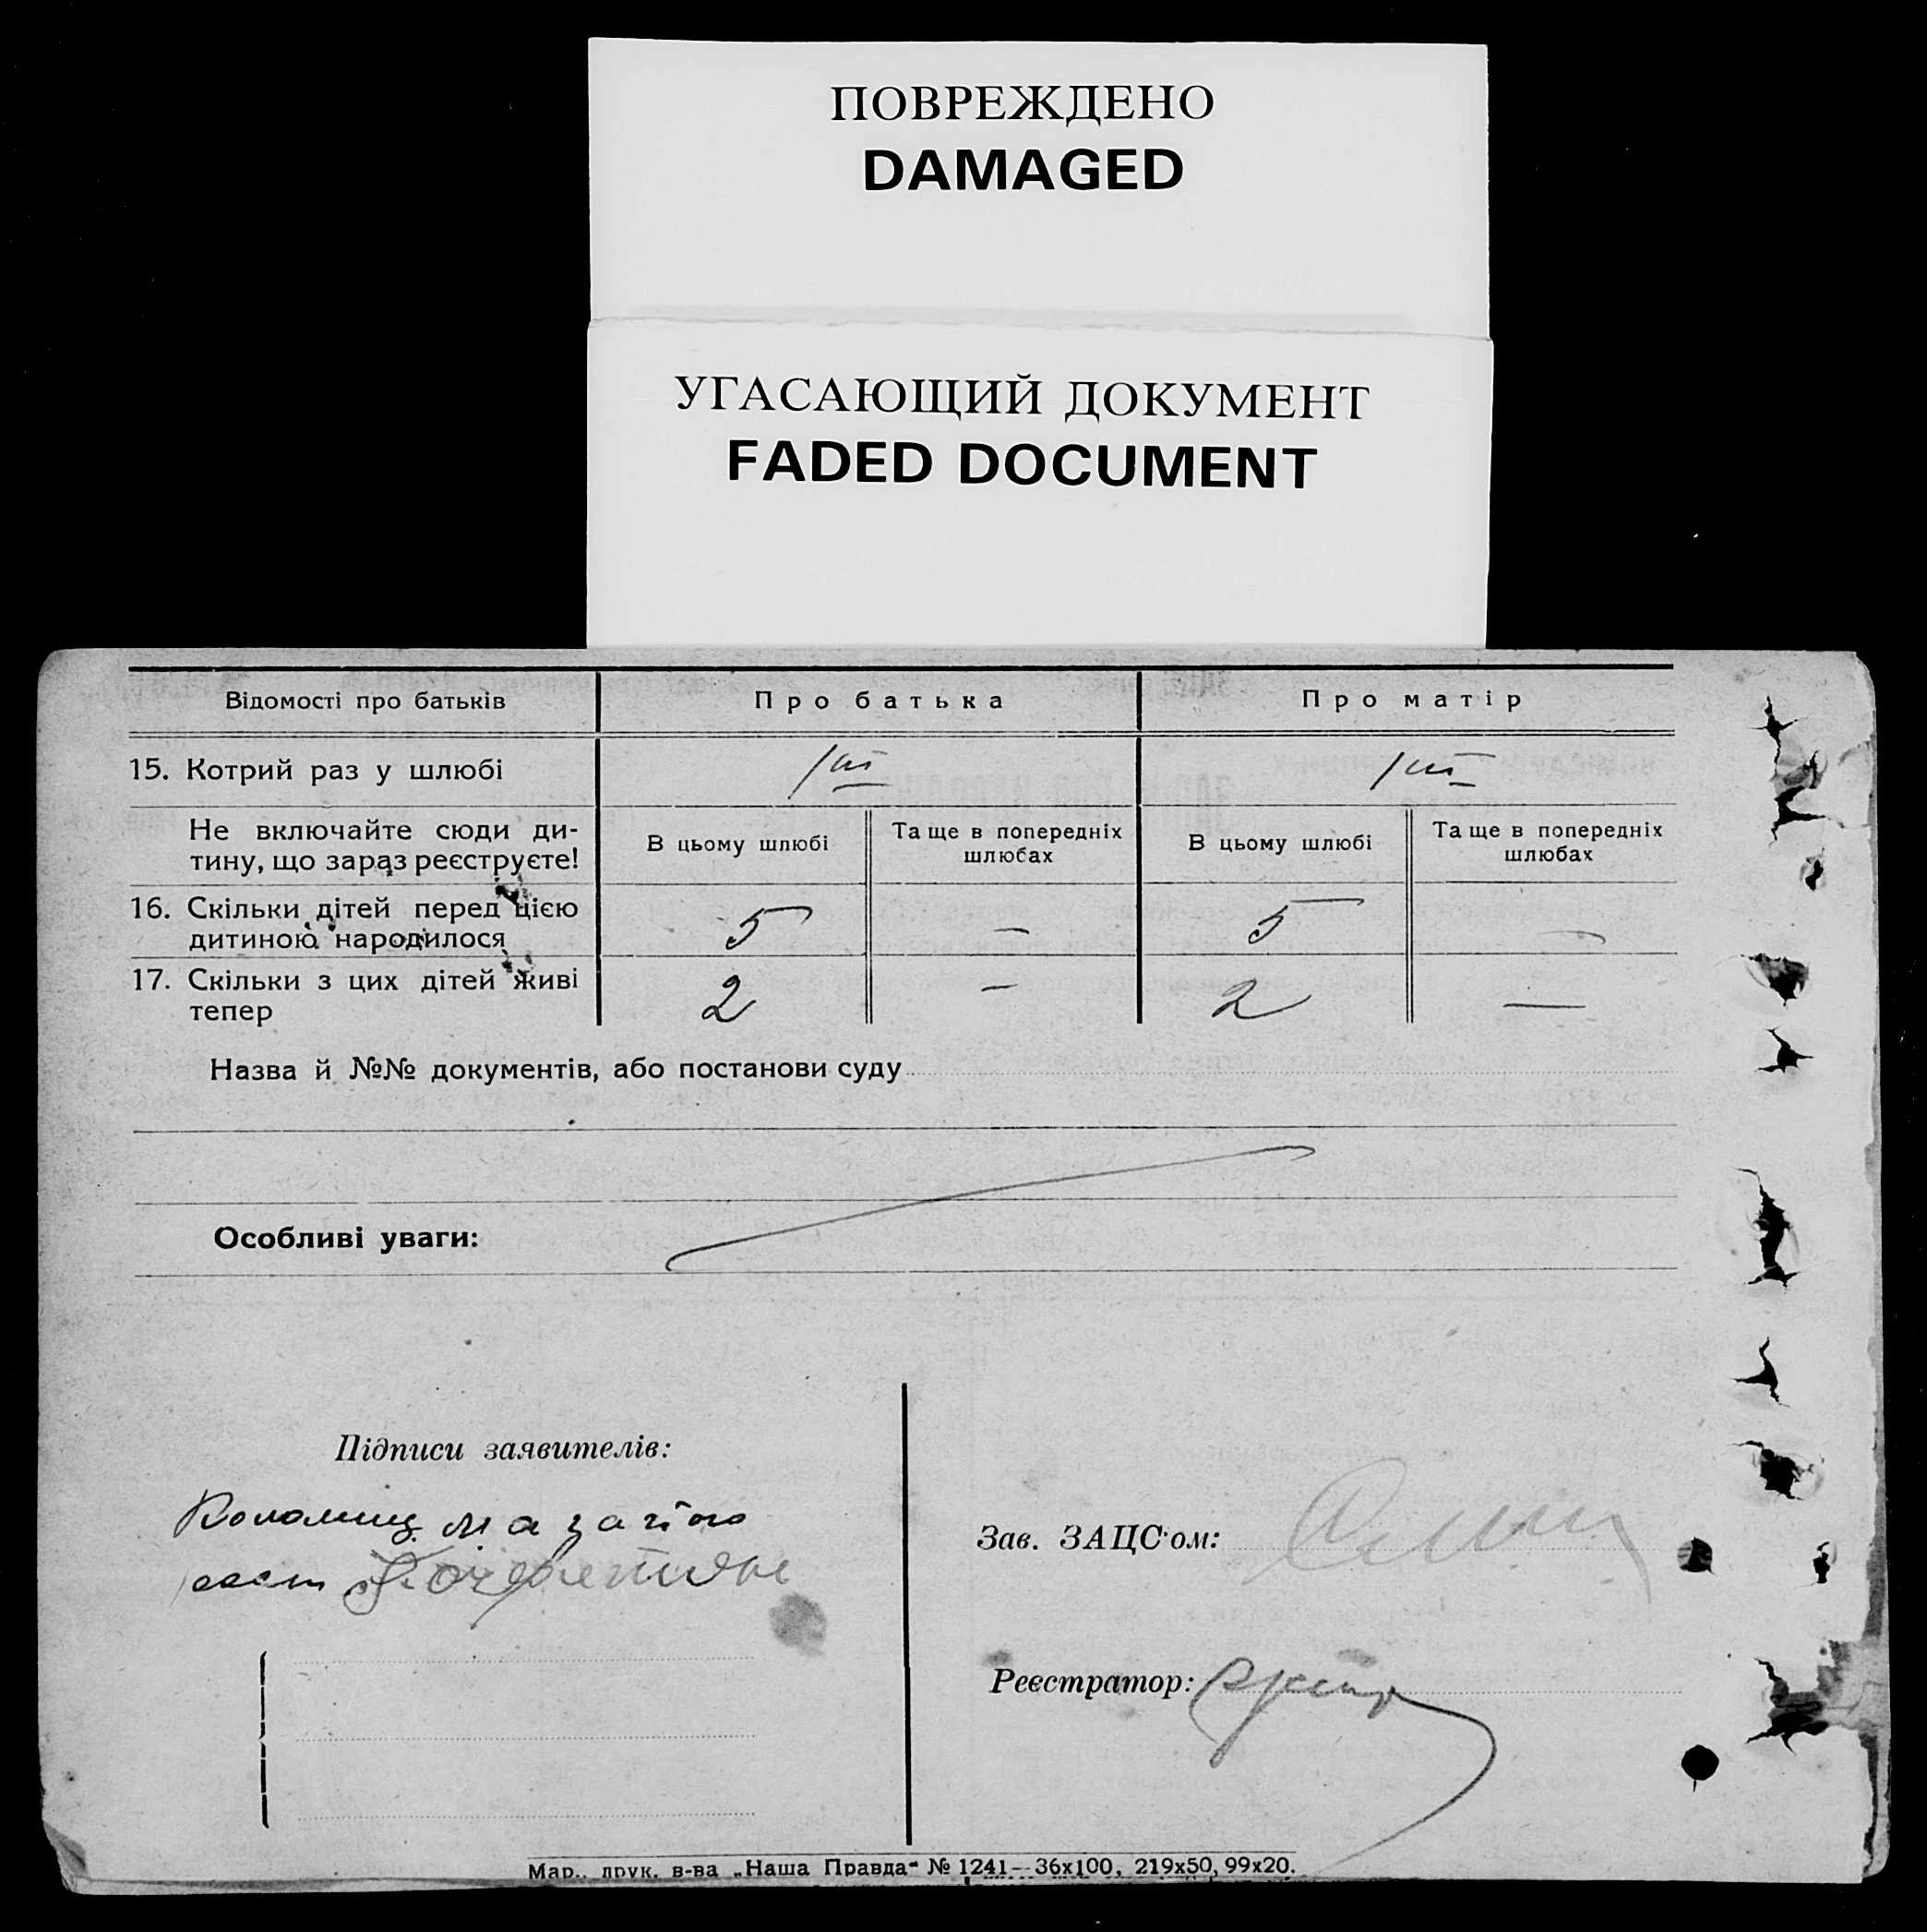 ПОВРЕЖДЕНО
DAMAGED
УГАСАЮЩИЙ ДОКУМЕНТ
FADED DOCUMENT
Відомості про батьків Про батька Про матір
15. Котрий раз у шлюбі 1ий 1ий
Не включайте сюди ди-
тину, що зараз реєструєте!
В цьому шлюбі
Та ще в попередніх
шлюбах
В цьому шлюбі
Та ще в попередніх
шлюбах
16. Скільки дітей перед цією
дитиною народилося 5 — 5 —
17. Скільки з цих дітей живі
тепер 2 — 2 —
Назва й №№ документів, або постанови суду
Особливі уваги:
Підписи заявителів:
Зав. ЗАЦС'ом:
Реєстратор:
Мар., друк. в-ва „Наша Правда“ № 1241—36х100, 219х50, 99х20.